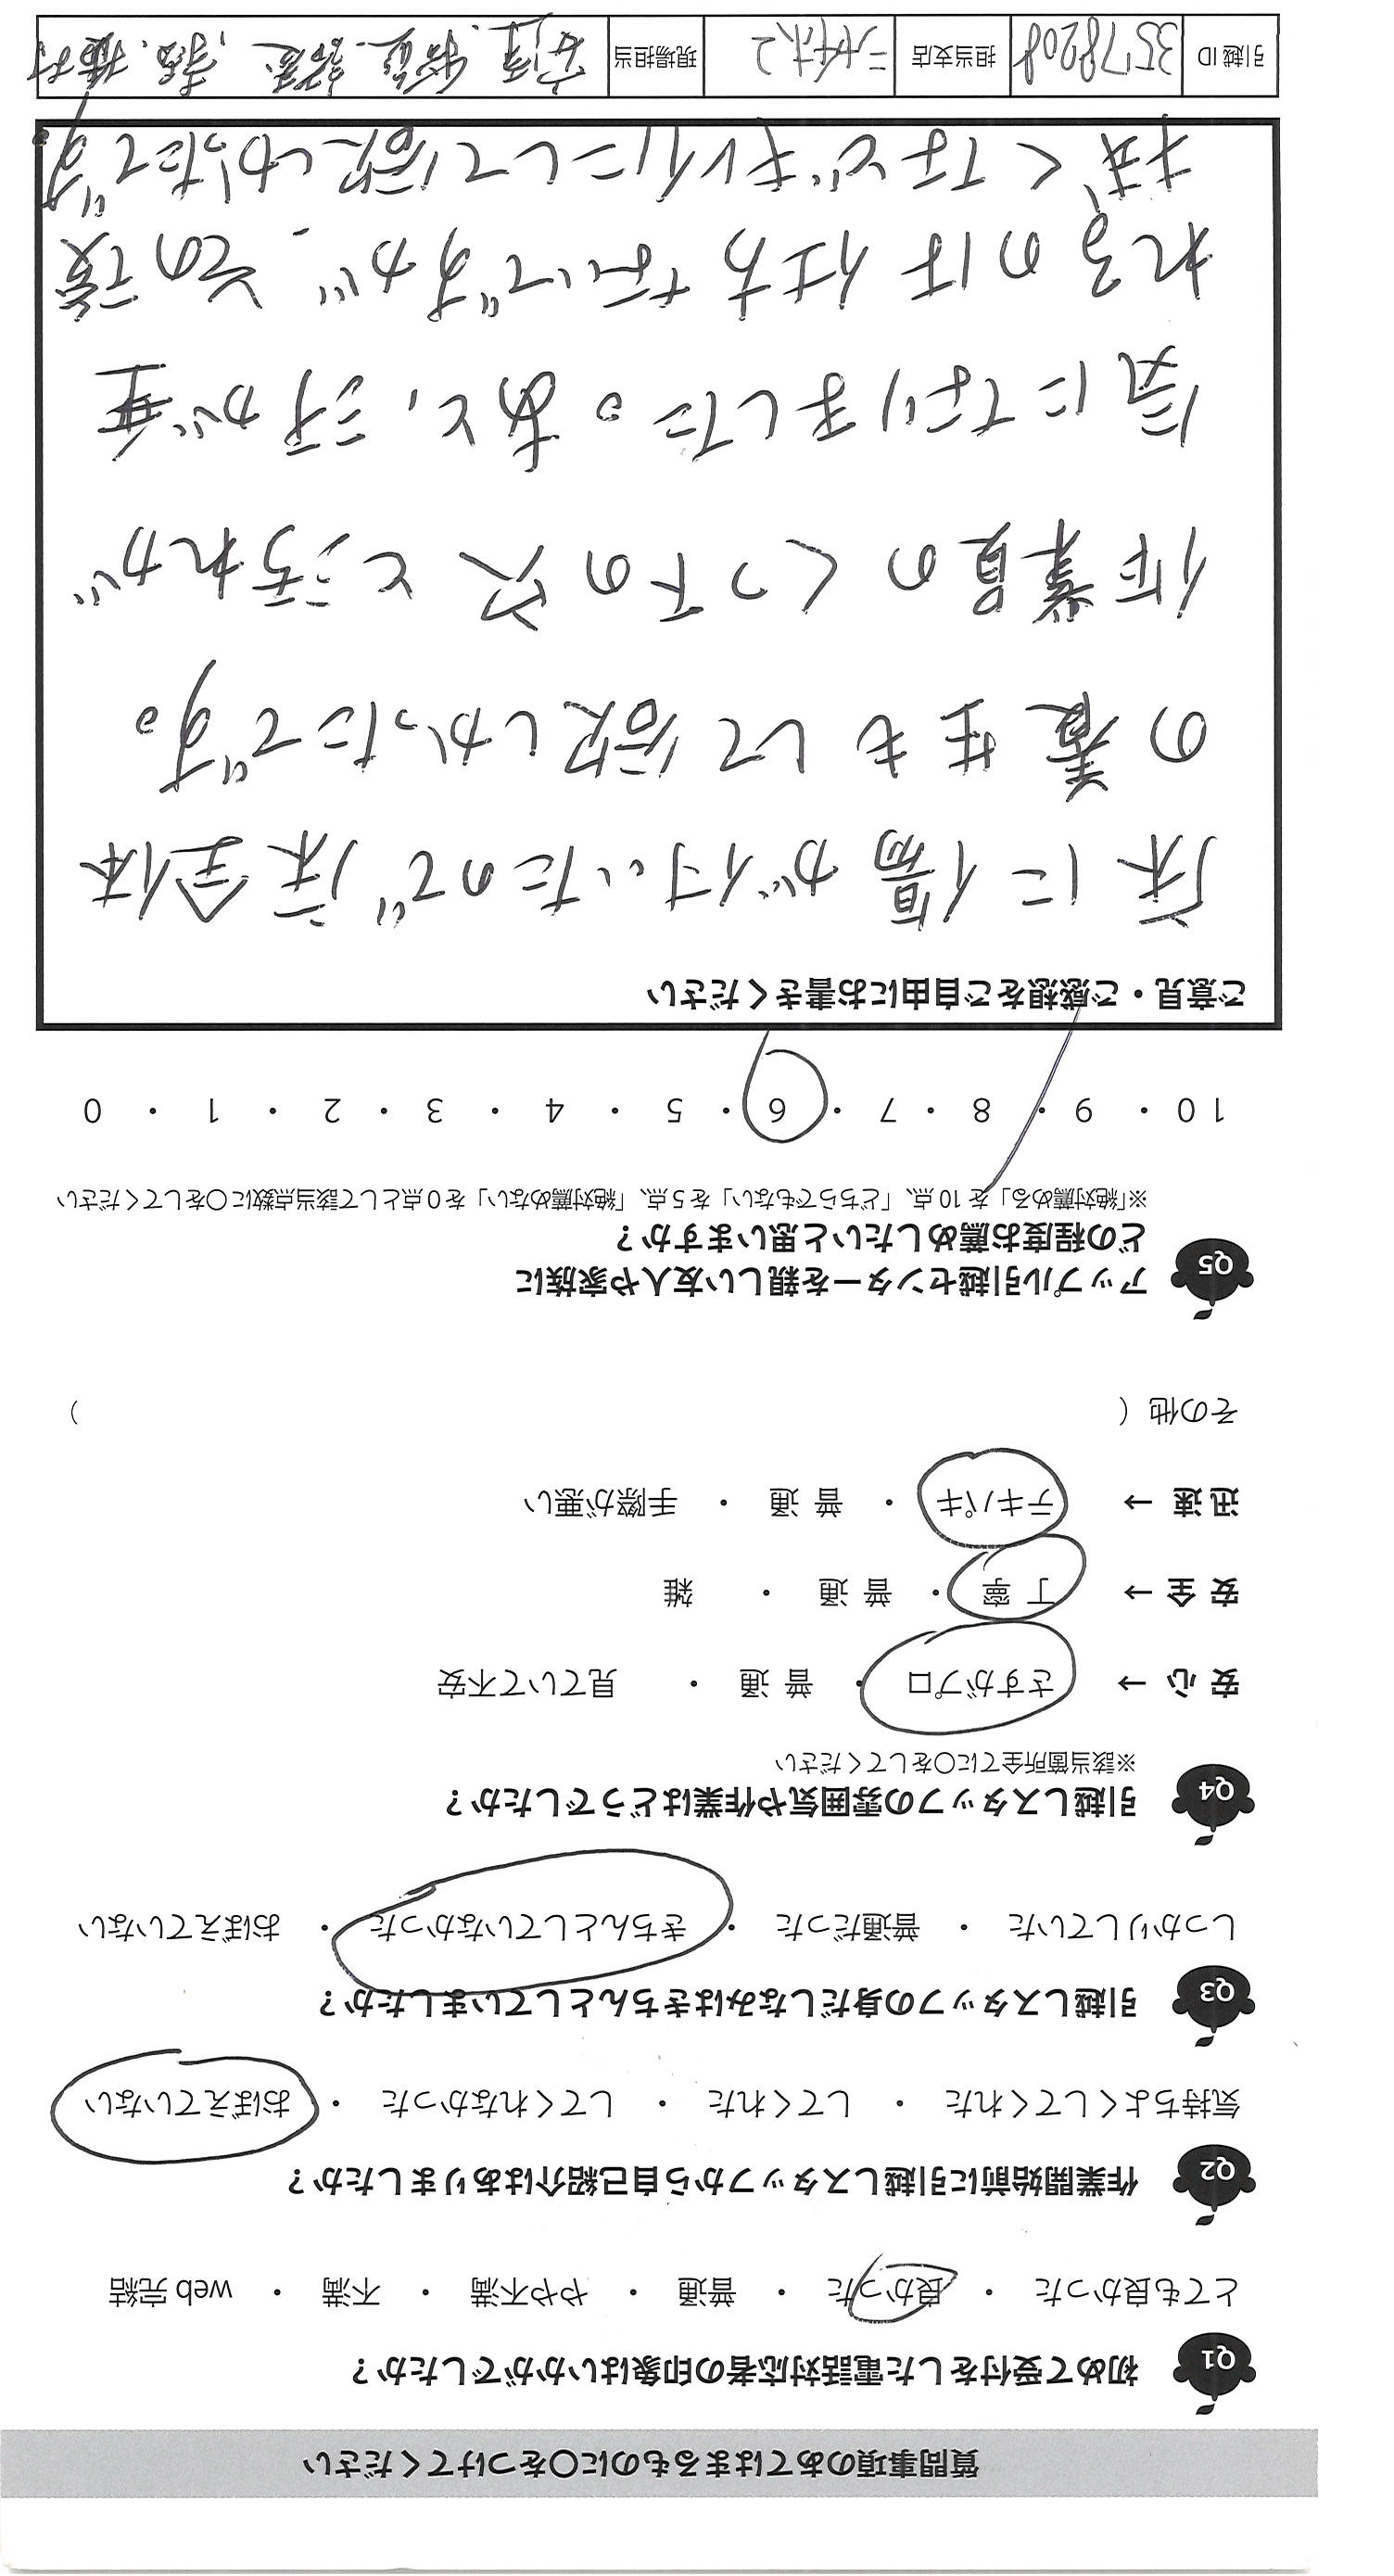 質問事項のあてはまるものに〇をつけてください
Q1 初めて受付をした電話対応者の印象はいかがでしたか？
とても良かった ・ 良かった ・ 普通 ・ やや不満 ・ 不満 ・ web 完結
Q2 作業開始前に引越しスタッフから自己紹介はありましたか？
気持ちよくしてくれた ・ してくれた ・ してくれなかった ・ おぼえていない
Q3 引越しスタッフの身だしなみはきちんとしていましたか？
しっかりしていた ・ 普通だった ・ きちんとしていなかった ・ おぼえていない
Q4 引越しスタッフの雰囲気や作業はどうでしたか？
※該当箇所全てに〇をしてください
安心 → さすがプロ ・ 普通 ・ 見ていて不安
安全 → 丁寧 ・ 普通 ・ 雑
迅速 → テキパキ ・ 普通 ・ 手際が悪い
その他（ ）
Q5 アップル引越センターを親しい友人や家族に
どの程度お薦めしたいと思いますか？
※「絶対薦める」を 10 点、「どちらでもない」を 5 点、「絶対薦めない」を 0 点として該当点数に〇をしてください
10 ・ 9 ・ 8 ・ 7 ・ 6 ・ 5 ・ 4 ・ 3 ・ 2 ・ 1 ・ 0
ご意見・ご感想をご自由にお書きください
床に傷が付いたので床全体
の養生もして欲しかったです。
作業員のくつ下の穴と汚れが
気になりました。あと、汗が垂
れるのは仕方ないですが、その後
拭くなどキレイにして欲しかったです。
引越 ID 3578208 担当支店 現場担当